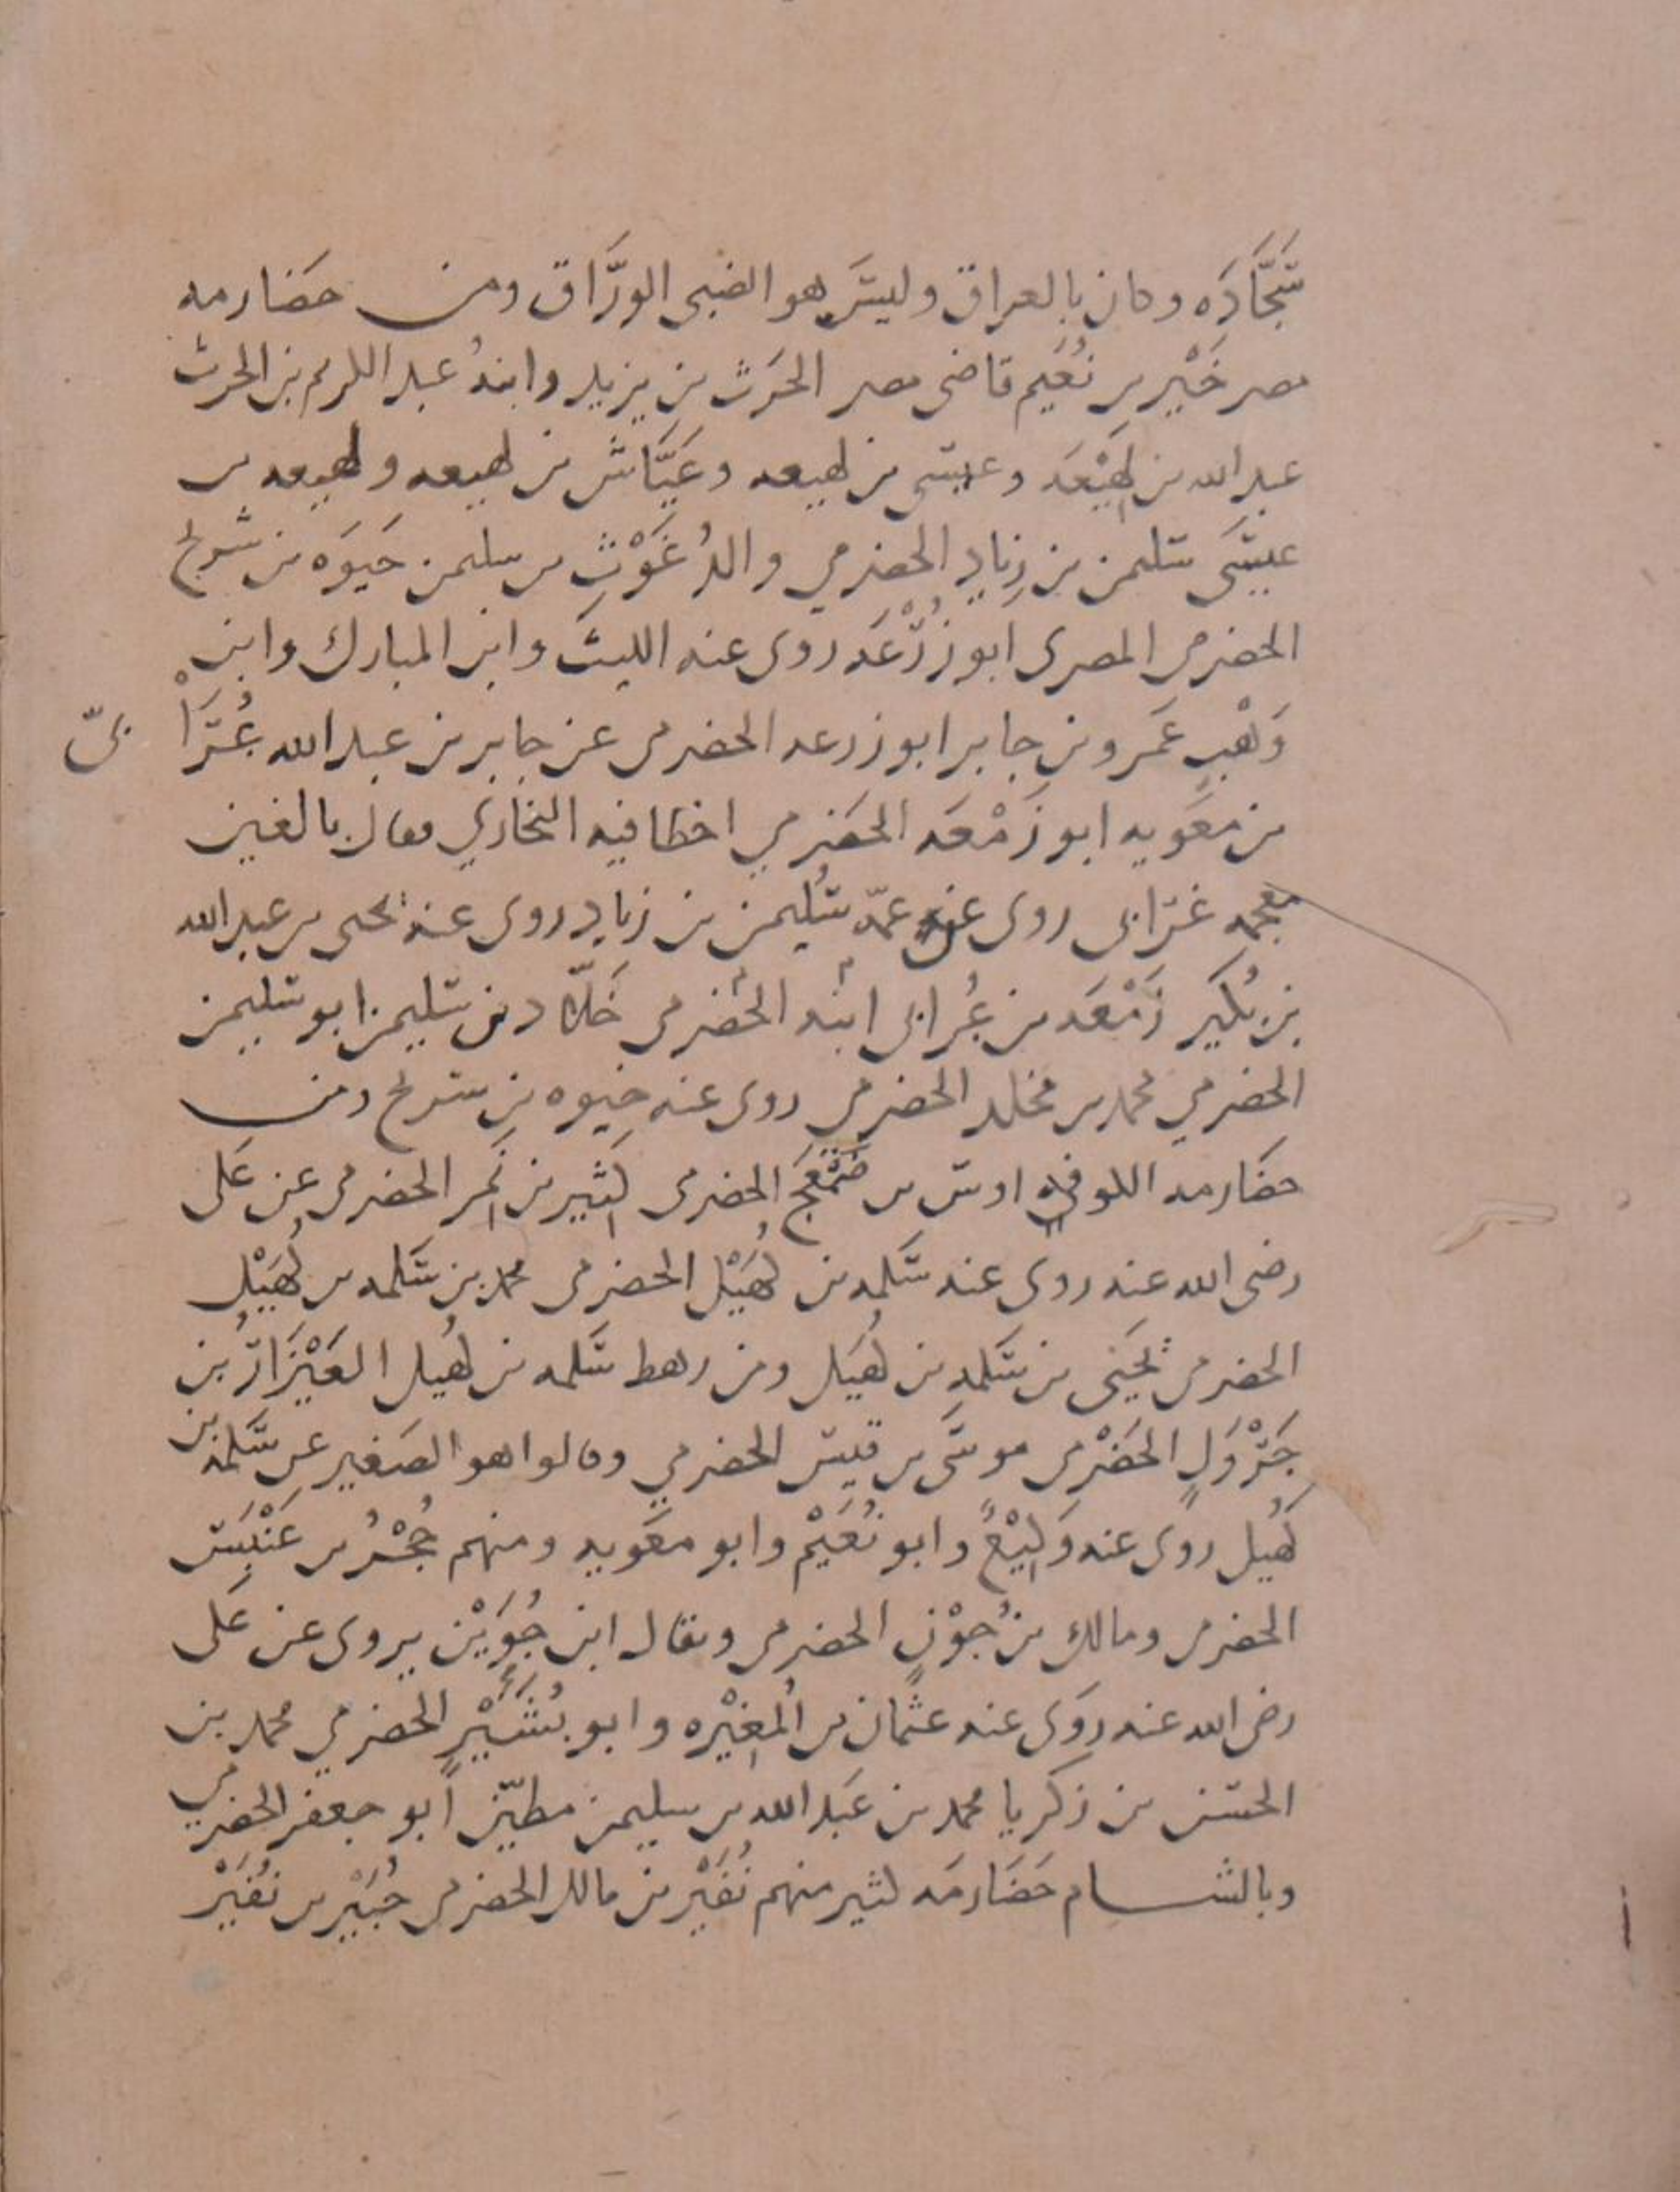 سَجَّادَه وكان بالعراق وليسَ هو الضبى الورَّاق ومن حضارمه
مصر خَيْر بن نُعَيم قاضى مصر الحَرث بن يزيد وابنهُ عبد الكريم بن الحرث
عبد الله بن لهِيْعَه وعيسى بن لهيعه وعَيَّاش بن لهيعه ولهيعه بن
عيسَى سليمن بن زيادٍ الحضرمي والدُ غَوْثِ بن سليمن حَيوَه بن شريح
الحضرمى المصرى ابو زُرْعَه روى عنه الليث وابن المبارك وابن
وَهْبٍ عَمرو بن جابر ابو زرعه الحضرمى عن جابر بن عبد الله عُرَا
بىّ
بن معَويه ابو زَمْعَه الحَضرمي اخطا فيه البخاري فقال بالغين
معجمه غرابى روى عن عمّه سُليمن بن زياد روى عنه يحيى بن عبد الله
بن بُكَير زَمْعَه بن عُرابى ابنه الحضرمى خَلّاد بن سليمن ابو سليمن
الحضرمي محمد بن مخلد الحضرمى روى عنه حيوه بن شريح ومن
حضَارمه الكوفه اوس بن ضَمْعَجٍ الحضرمى كثِير بن نَمِر الحضرمى عن عَلى
رضى الله عنه روى عنه سَلمه بن كُهَيْل الحضرمى محمد بن سَلمه بن كُهَيْلٍ
الحضرمى يَحْيَى بن سَلمه بن كُهَيل ومن رهط سَلمه بن كُهيل العَيْزَارُ بن
جَرْوَلٍ الحَضْرمى موسَى بن قيس الحضرمي وقالوا هو الصَغير عن سَلمه بن
كُهيل روَى عنه وَكِيْعٌ وابو نُعَيْم وابو معَويه ومنهم حُجْرُ بن عَنْبَس
الحضرمى ومالك بن جُوْنٍ الحضرمى ويقال ابن جُوَيْن يروى عن عَلى
رضى الله عنه روَى عنه عثمان بن المُغِيْره وابو بُشَيْرٍ الحضرمي محمد بن
الحسَن بن زكريا محمد بن عَبد الله بن سليمن مطيّن ابو جعفر الحضرمي
وبالشام حَضَارمَه كثير منهم نُفَيْر بن مالك الحضرمى جُبَيْر بن نُفَيْر